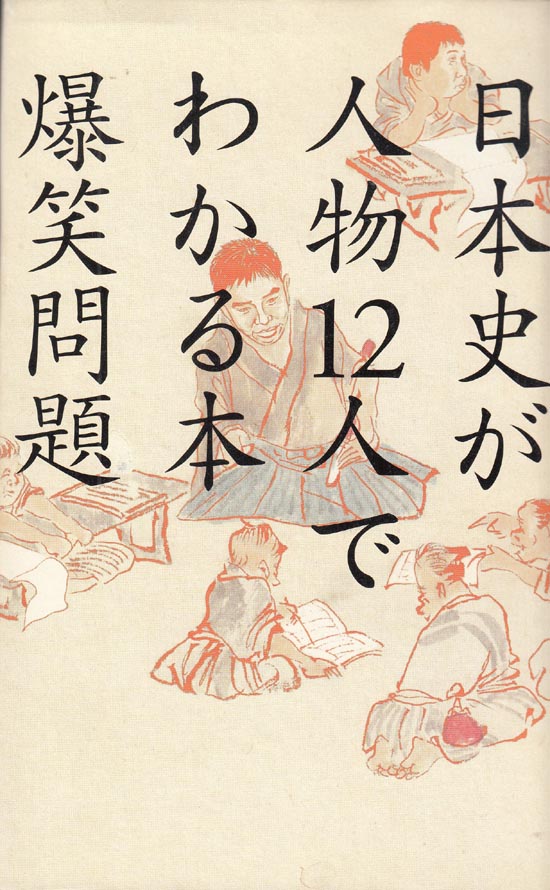 日本史が
人物12人で
わかる本
爆笑問題